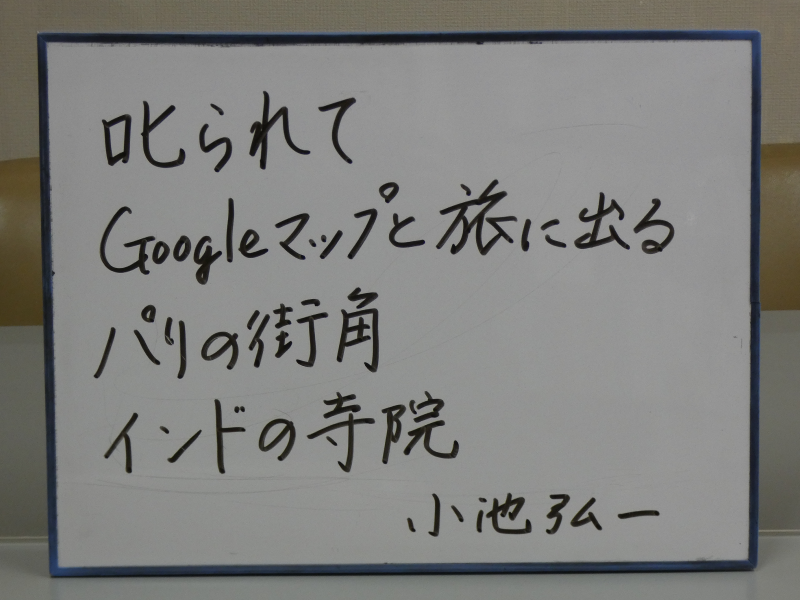 叱られて
Googleマップと旅に出る
パリの街角
インドの寺院
小池弘一